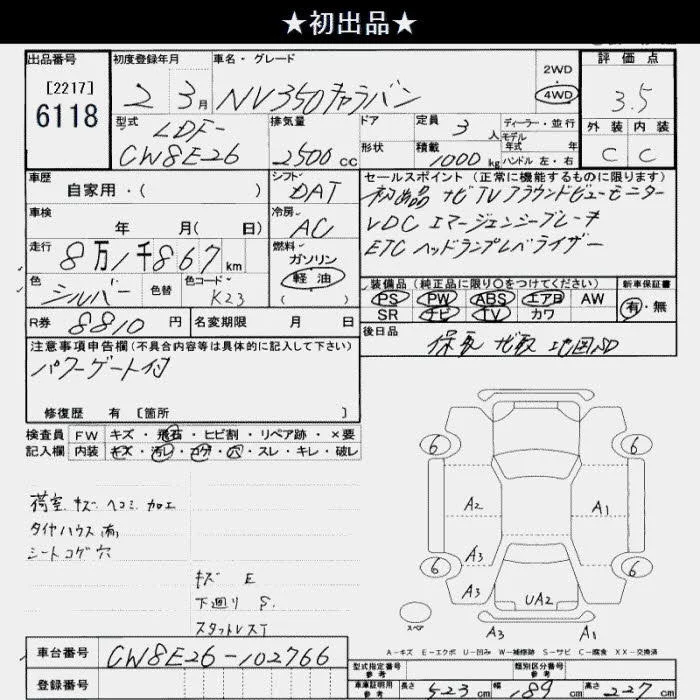 ★初出品★
出品番号 初度登録年月 車名・グレード 2WD 評価点
[2217] 2 3月 NV350キャラバン 4WD 3.5
6118 型式 LDF- 排気量 ドア 定員 3人 ディーラー・並行 外装 内装
モデル
年式 年
CW8E26 2500cc 形状 積載 1000kg ハンドル 左・右 C C
車歴 シフト セールスポイント (正常に機能するものに限ります)
自家用・( ) DAT 初出品 ナビTVアラウンドビューモニター
車検 冷房 VDC エマージェンシーブレーキ
年 月( 日) AC ETC ヘッドランプレベライザー
走行 8万1千867km 燃料
ガソリン
軽油
( )
色 シルバー 色替 色コード K23
装備品 (純正品に限り〇をつけてください) 新車保証書
PS PW ABS エアB AW 有・無
SR ナビ TV カワ
R券 8810円 名変期限 月 日
後日品 保 取 ナビ取 地図SD
注意事項申告欄 (不具合内容等は具体的に記入して下さい)
パワーゲート付
修復歴 有 [箇所 ]
検査員 FW キズ・飛石・ヒビ割・リペア跡・×要
記入欄 内装 キズ・汚レ・コゲ・穴・スレ・キレ・破レ
荷室 キズ ヘコミ 加工
タイヤハウス 有
シートコゲ穴
キズ E
下廻り S.
スタットレスT
6 6
A2 A1
A3
6 6
A3 UA2
スペア
A3 A1
A-キズ E-エクボ U-凹み W-補修跡 S-サビ C-腐食 XX-交換済
車台番号 CW8E26-102766
登録番号
型式指定番号 参考 類別区分番号 参考
車庫証明用 参考 長さ 523cm 幅 189cm 高さ 227cm